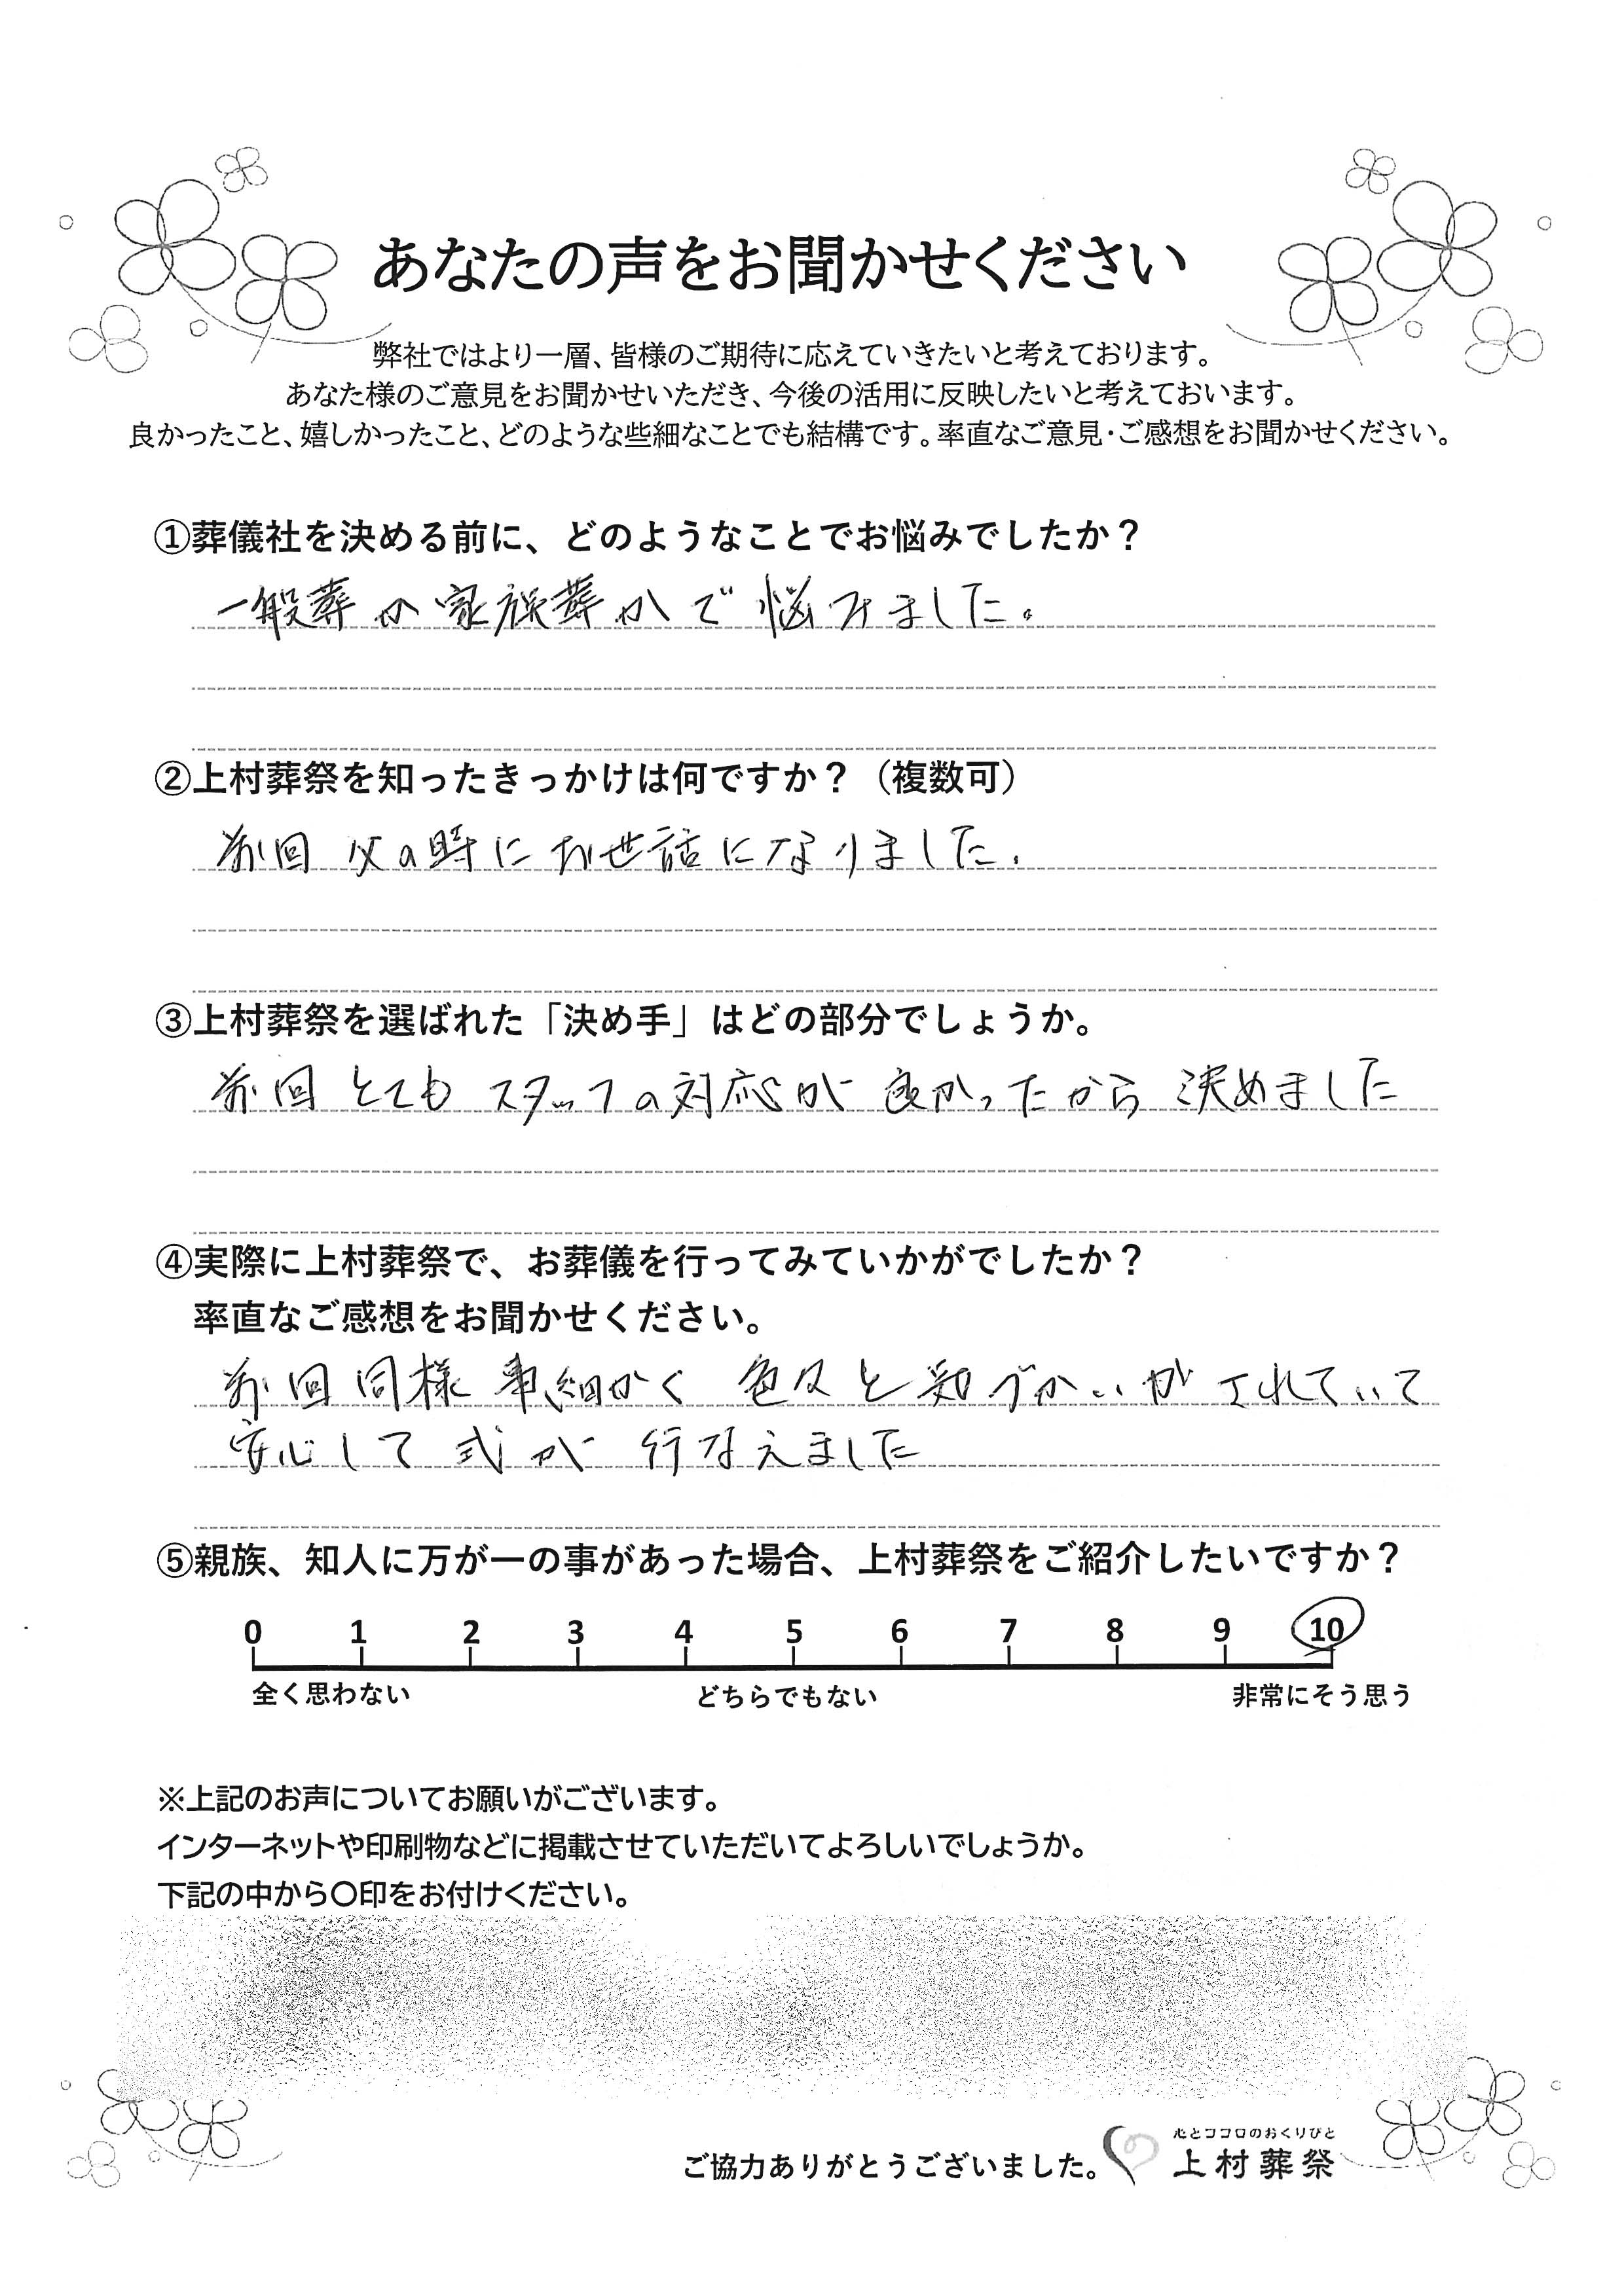 あなたの声をお聞かせください
弊社ではより一層、皆様のご期待に応えていきたいと考えております。
あなた様のご意見をお聞かせいただき、今後の活用に反映したいと考えておいます。
良かったこと、嬉しかったこと、どのような些細なことでも結構です。率直なご意見・ご感想をお聞かせください。
①葬儀社を決める前に、どのようなことでお悩みでしたか？
一般葬か家族葬かで悩みました。
②上村葬祭を知ったきっかけは何ですか？（複数可）
前回父の時にお世話になりました.
③上村葬祭を選ばれた「決め手」はどの部分でしょうか。
前回とてもスタッフの対応が良かったから決めました
④実際に上村葬祭で、お葬儀を行ってみていかがでしたか？
率直なご感想をお聞かせください。
前回同様事細かく色々と気づかいがされていて
安心して式が行なえました
⑤親族、知人に万が一の事があった場合、上村葬祭をご紹介したいですか？
0 1 2 3 4 5 6 7 8 9 10
全く思わない どちらでもない 非常にそう思う
※上記のお声についてお願いがございます。
インターネットや印刷物などに掲載させていただいてよろしいでしょうか。
下記の中から〇印をお付けください。
心とココロのおくりびと
ご協力ありがとうございました。 上村葬祭